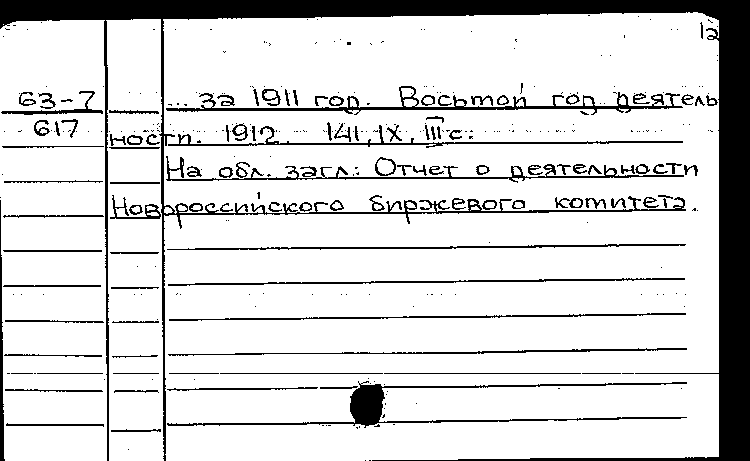 12
63-7 ... за 1911 год. Восьмой год деятель
617 ности. 1912. 141, IX, III с.
На обл. загл.: Отчет о деятельности
Новороссийского биржевого комитета.